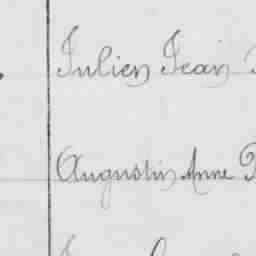 Julien Jean
Augustin Anne